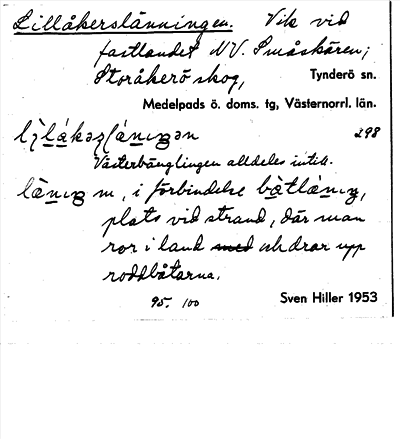 Lillåkerslänningen. Vik vid
fastlandet NV. Småskären;
Storåkerö skog, Tynderö sn.
Medelpads ö. doms. tg, Västernorrl. län.
298
Västerbånglingen alldeles intill.
m, i förbindelse
plats vid strand, där man
ror i land med och drar upp
roddbåtarna.
95 100 Sven Hiller 1953